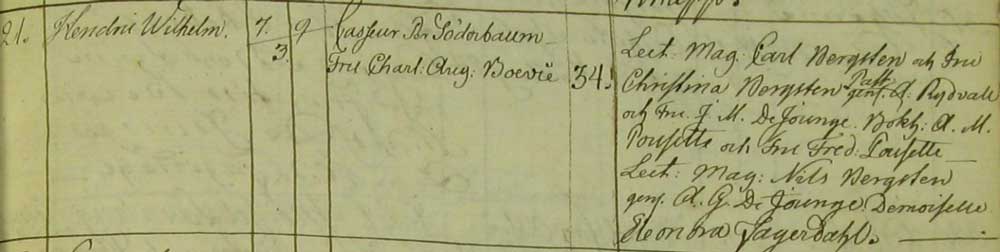 21. Hendric Wilhelm. 7. 9 Casseur Pr Söderbaum
3. Fru Charl: Aug: Boevië 34.
Lect: Mag: Carl Bergsten och Fru
Christina Bergsten gens. A. Rydvall
och Fru J. M. De Jounge. Bokh: A. M.
Pousette och Fru Fred: Pousette
Lect: Mag: Nils Bergsten
gens. A. G. De Jounge. Demoiselle
Eleonora Lagerdahl.